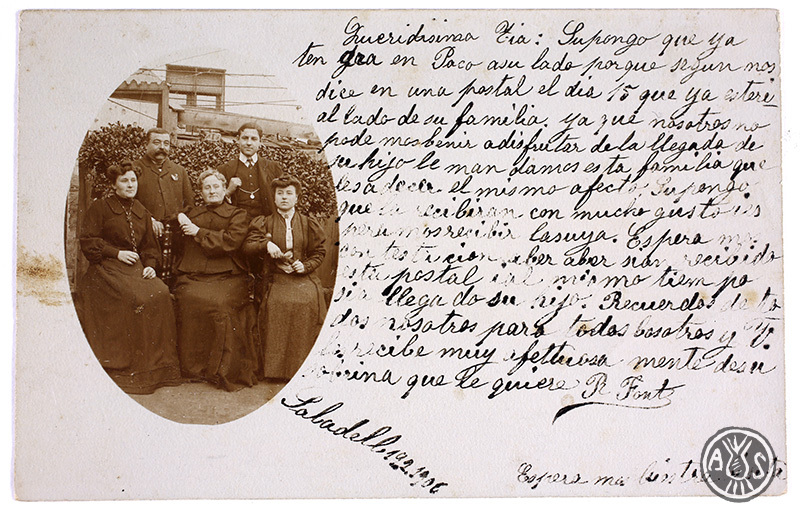 Queridisima Tia: Supongo que ya
ten gra en Paco asu lado porque segun nos
dice en una postal el dia 15 que ya
al lado de su familia. ya que nosotros no
pode mosbenir a disfrutar de la llegada de
su hijo le man damos esta familia que
el mismo afecto, Supongo
que la recibiran con mucho gusto
recibir lasuya. Espera
aber si an recivido
esta postal i al mismo tiem po
si a llega do su hijo. Recuerdos de to
dos nosotros para todos bosotros y V.
recibe muy afettuosa mente desu
sobrina que le quiere R Font
Sabadell 1906
Espera
A S